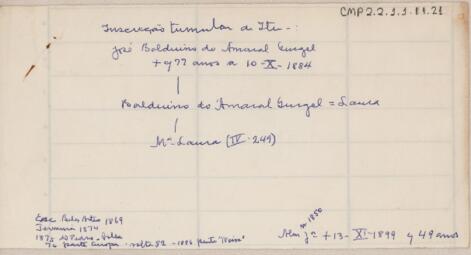 CMP 2.2.1.1.11.21
Inscrição tumular de Itu -:
José Balduino do Amaral Gurgel
+ 77 anos a 10-X-1884
Balduino do Amaral Gurgel = Laura
Mª Laura (IV-249)
Esc Belas Artes 1869
Termina 1874
1875 D Pedro
76 parte Europa - volta 82 - 1886
Alm Jr + 13-XI-1899 49 anos
n 1850